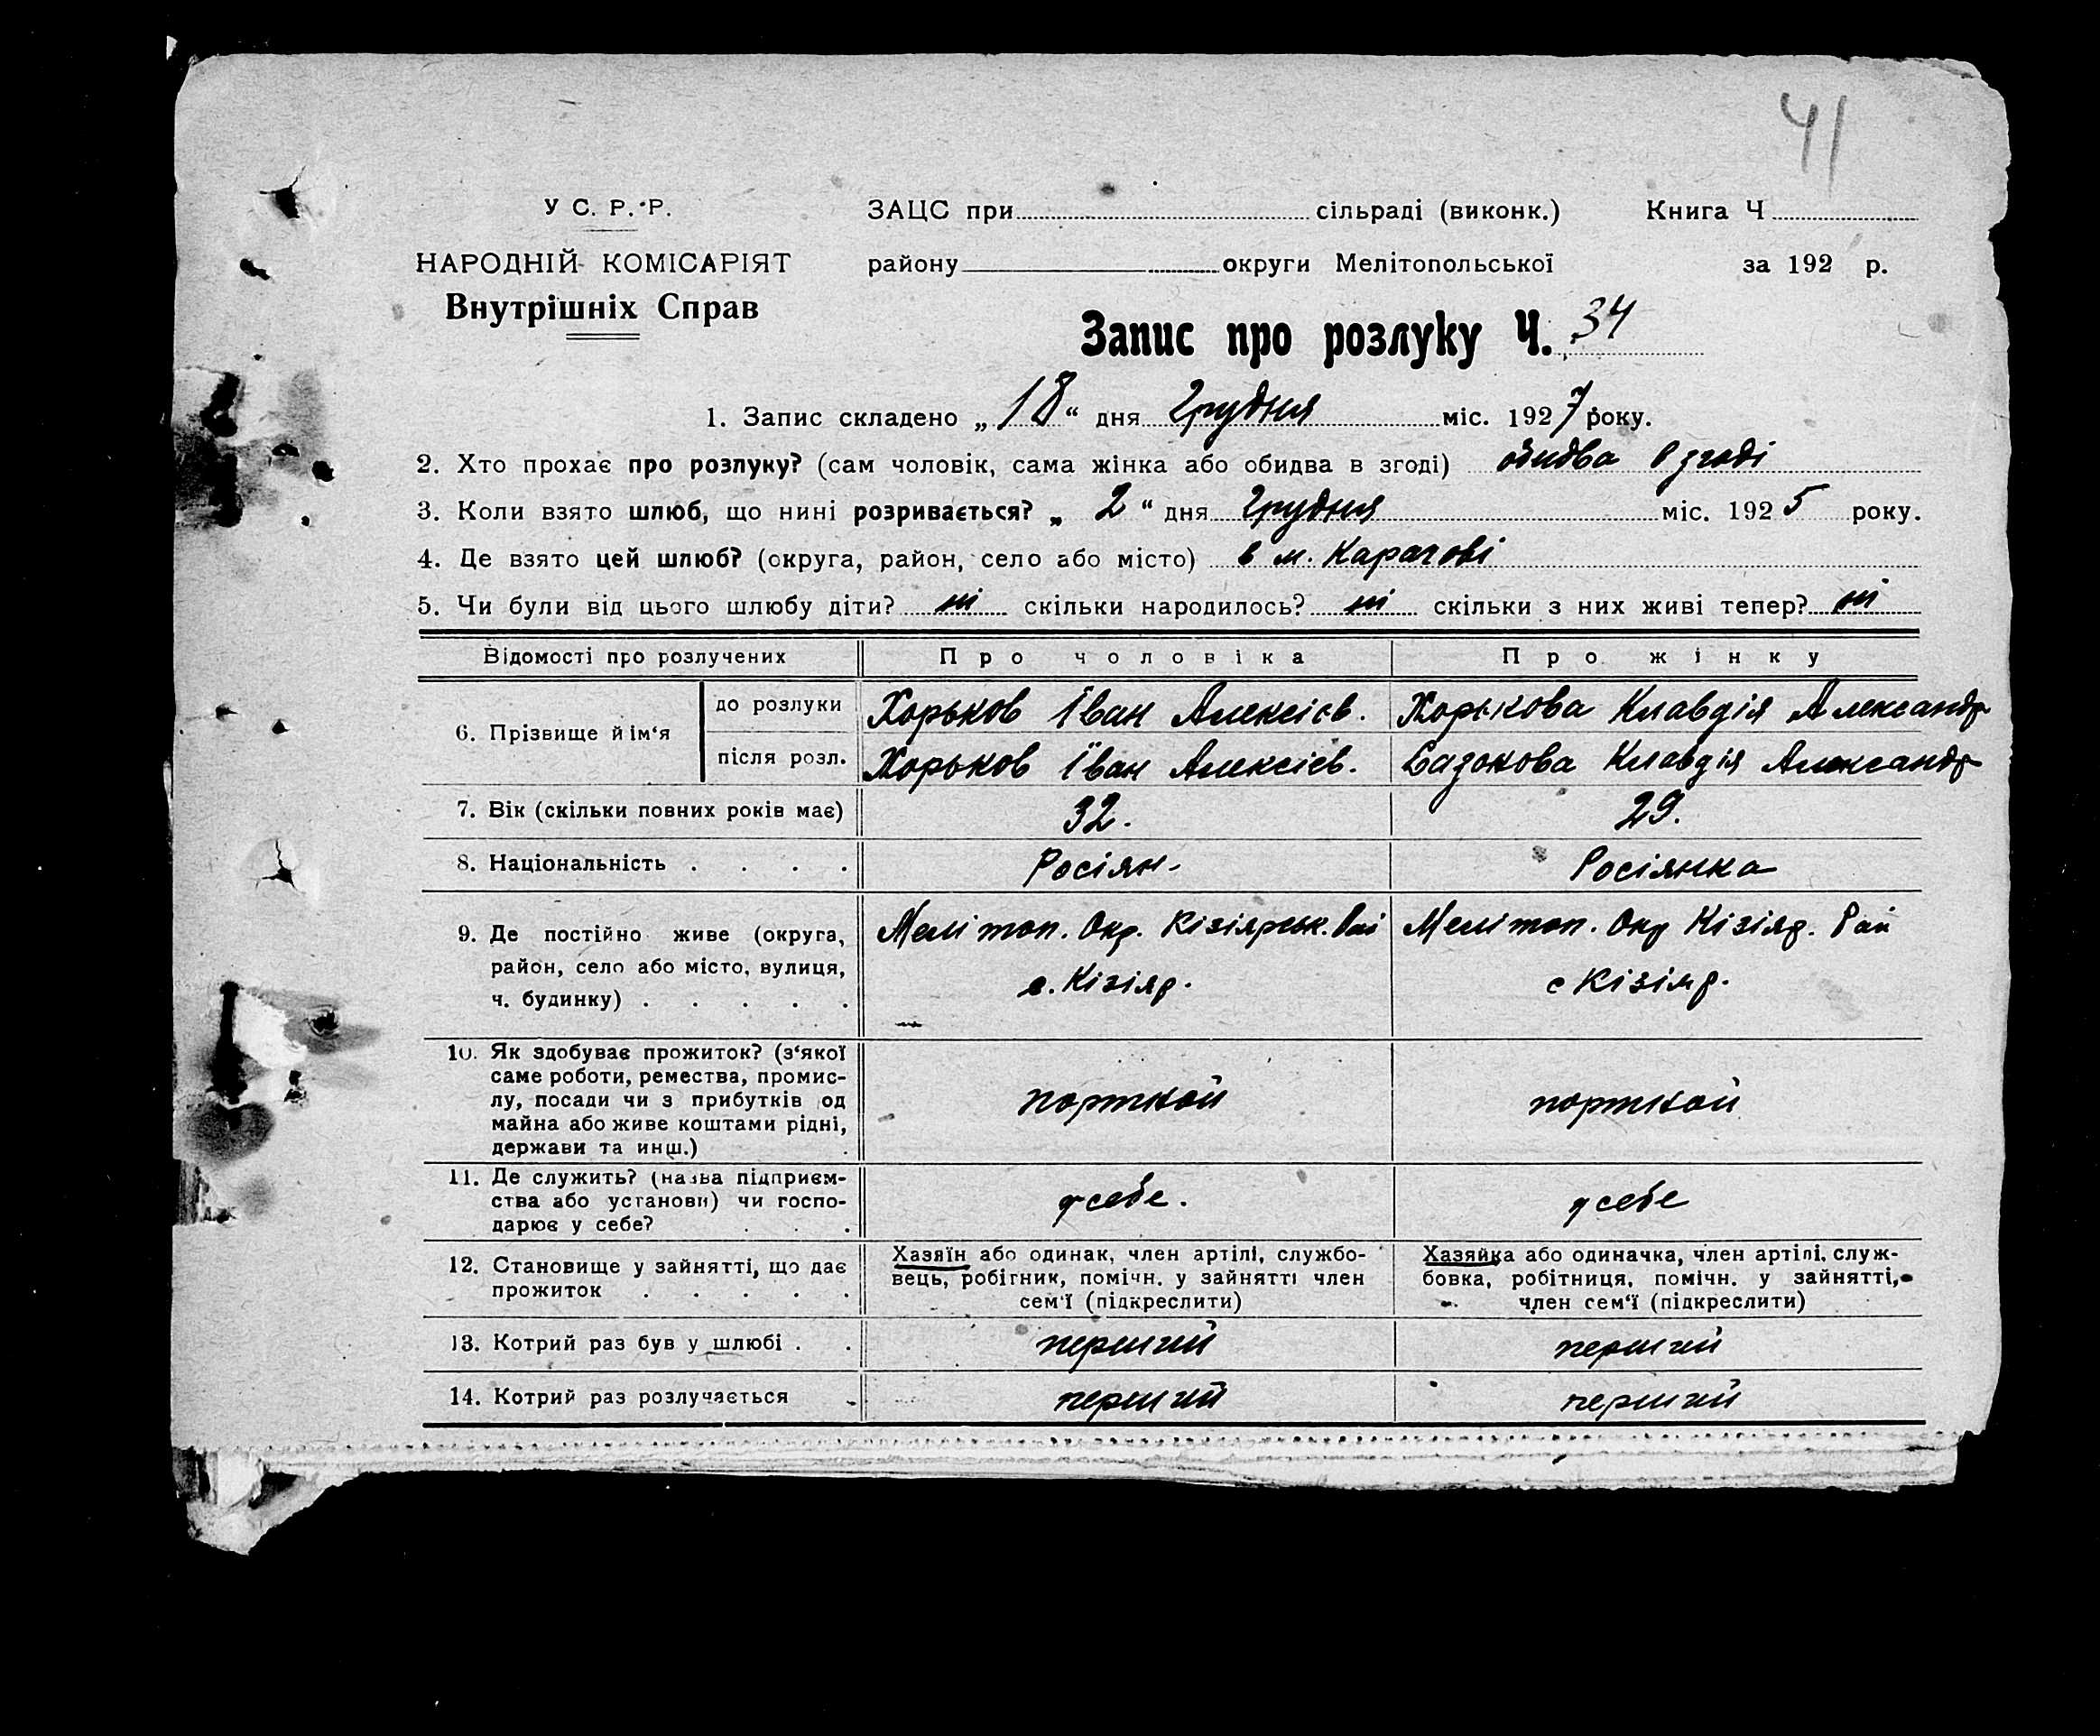 41
У С. Р. Р.
ЗАЦС при сільраді (виконк.) Книга Ч
НАРОДНІЙ КОМІСАРІЯТ
району округи Мелітопольської за 192 р.
Внутрішніх Справ
Запис про розлуку Ч. 34
1. Запис складено „ 18 “ дня Грудня міс. 1927 року.
2. Хто прохає про розлуку? (сам чоловік, сама жінка або обидва в згоді) обидва в згоді
3. Коли взято шлюб, що нині розривається? „ 2 “ дня Грудня міс. 1925 року.
4. Де взято цей шлюб? (округа, район, село або місто) в м.
5. Чи були від цього шлюбу діти? ні скільки народилось? ні скільки з них живі тепер? ні
Відомості про розлучених Про чоловіка Про жінку
6. Прізвище й ім‘я
до розлуки Хорьков Іван Алексієв. Хорькова Клавдія Александр
після розл. Хорьков Іван Алексієв. Клавдія Александр
7. Вік (скільки повних років має) 32. 29.
8. Національність . . . . Росіян. Росіянка
9. Де постійно живе (округа, Мелітоп. Окр. Кізіярськ. Рай Мелітоп. Окр Кізіяр. Рай
район, село або місто, вулиця, с. Кізіяр. с Кізіяр.
ч. будинку) . . . . .
10. Як здобуває прожиток? (з‘якої
саме роботи, ремества, промис-
лу, посади чи з прибутків од портной портной
майна або живе коштами рідні,
держави та инш.)
11. Де служить? (назва підприєм-
ства або установи) чи госпо- у себе. у себе
дарює у себе? . . .
12. Становище у зайнятті, що дає
прожиток . . . . .
Хазяїн або одинак, член артілі, службо-
вець, робітник, помічн. у зайнятті член
сем‘ї (підкреслити)
Хазяйка або одиначка, член артілі, служ-
бовка, робітниця, помічн. у зайнятті,
член сем‘ї (підкреслити)
13. Котрий раз був у шлюбі . . перший перший
14. Котрий раз розлучається перший перший